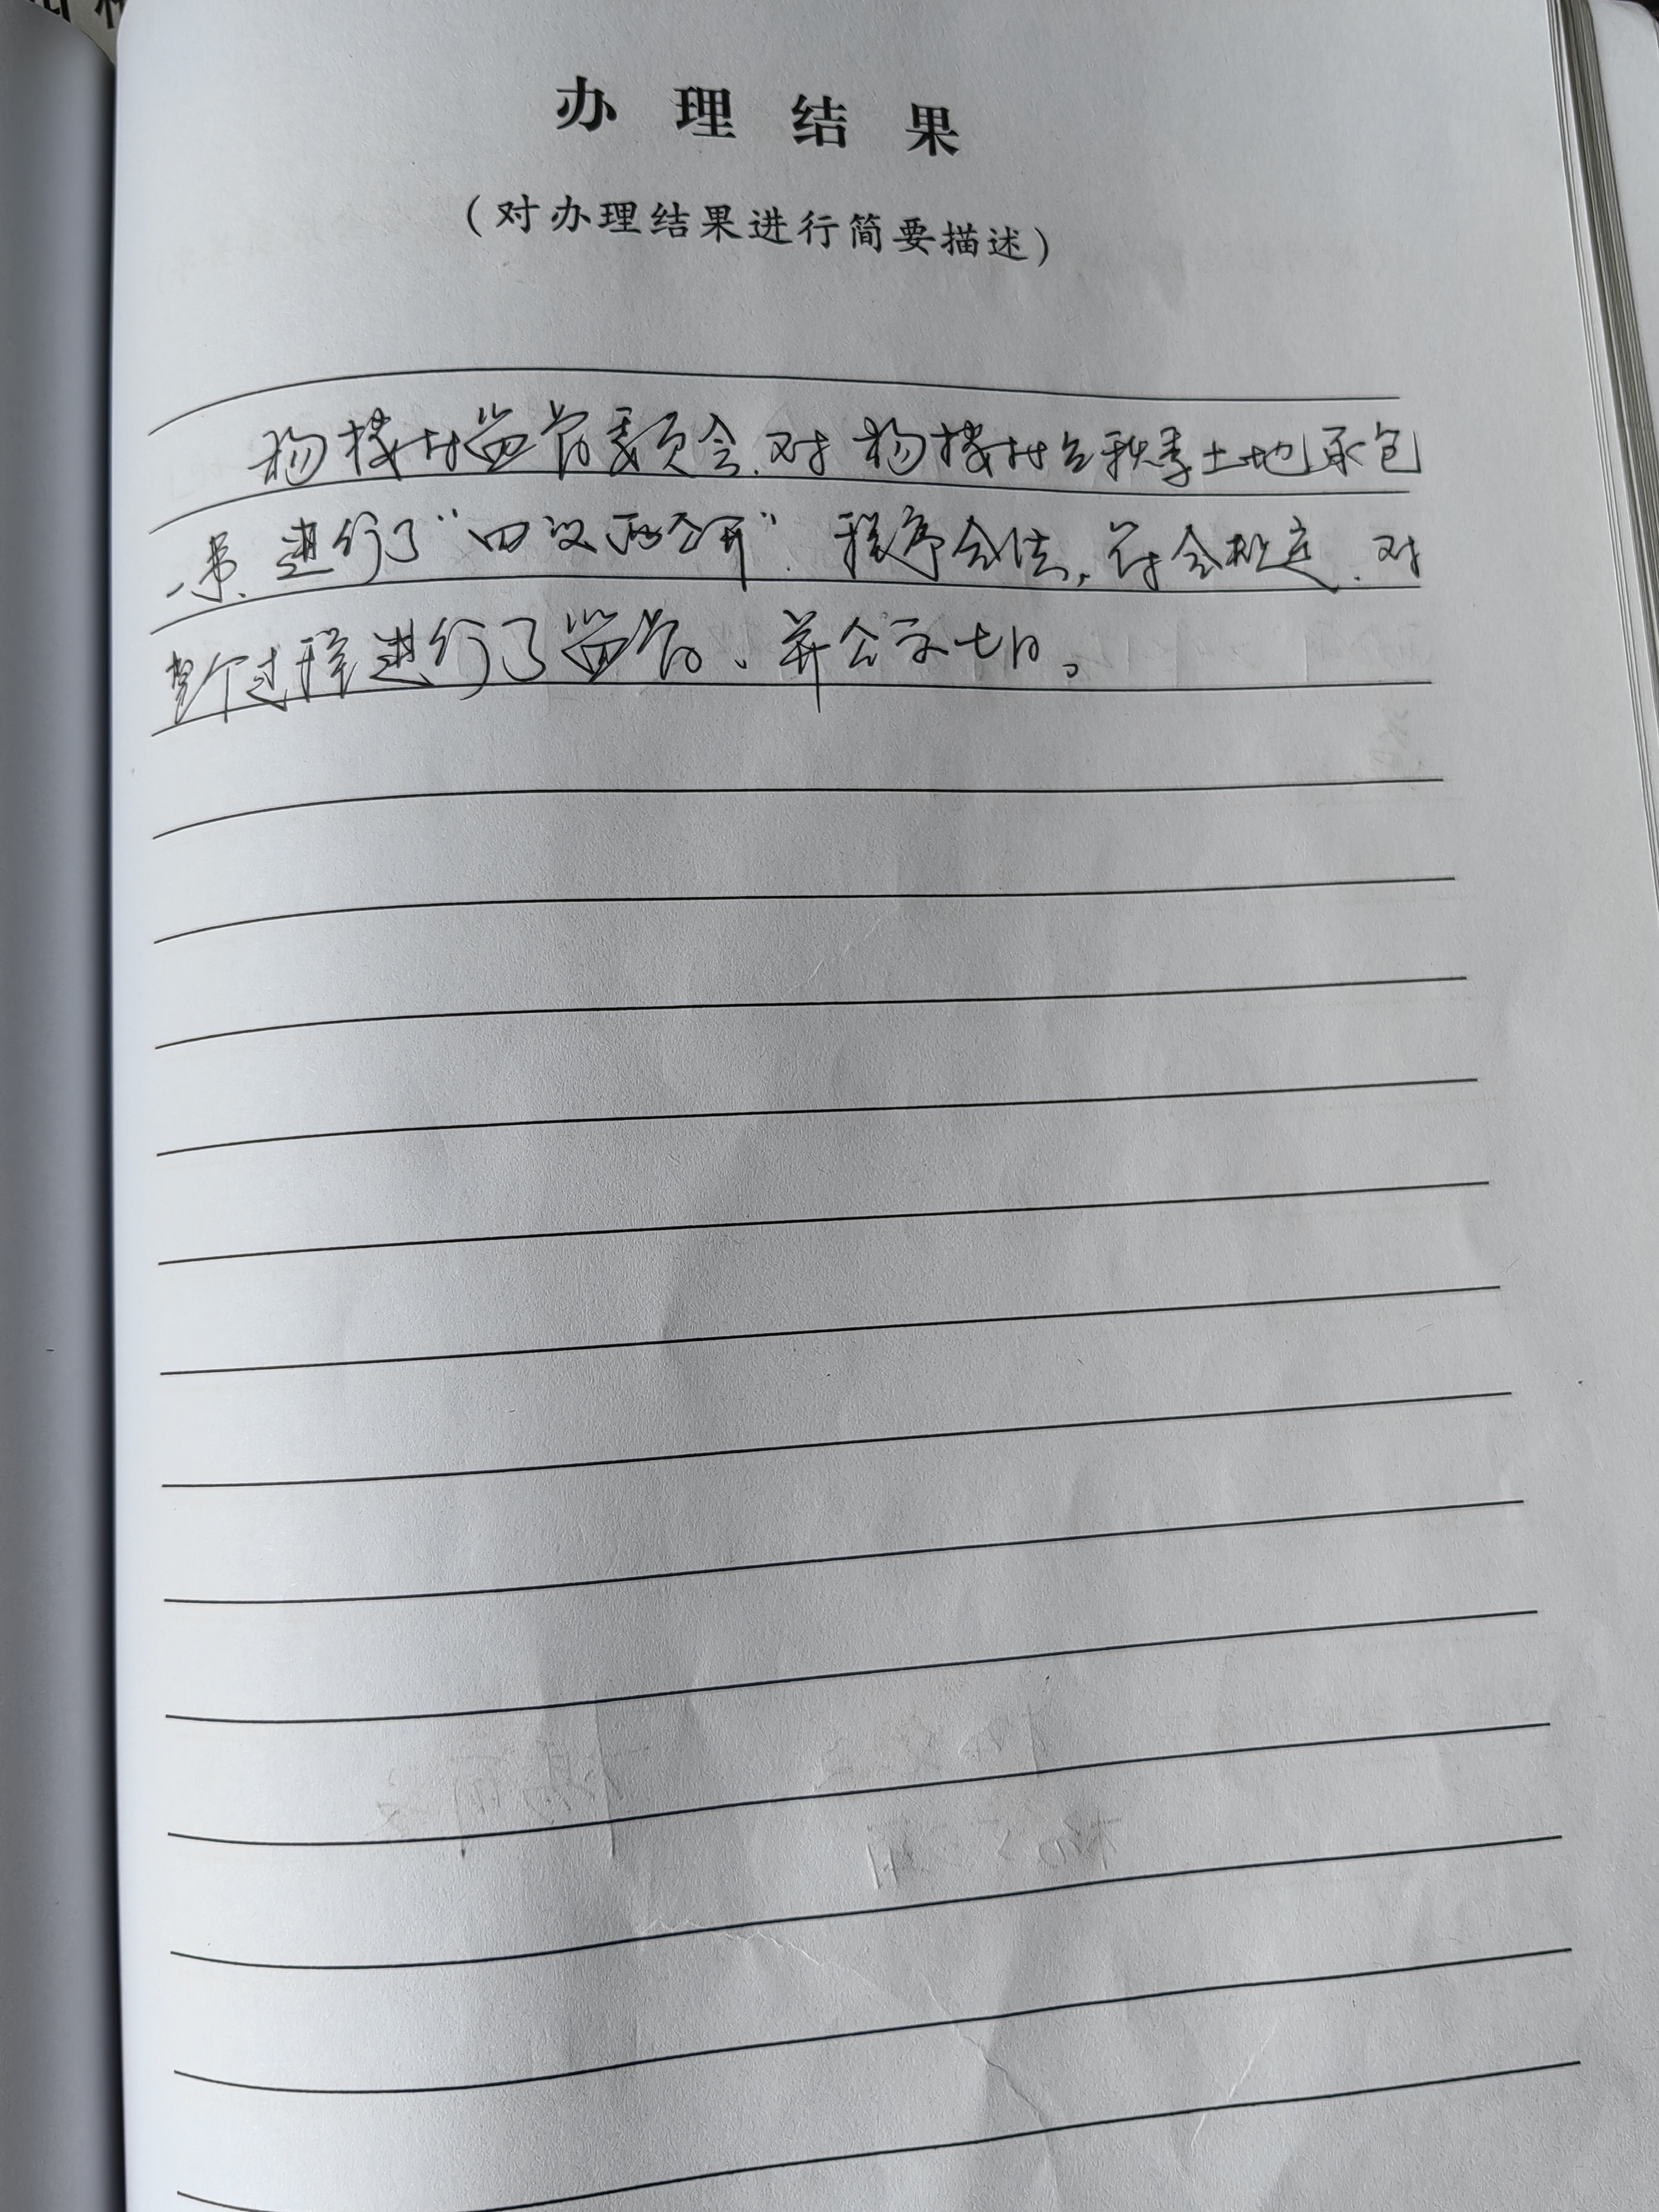 办理结果
(对办理结果进行简要描述)
杨楼村监督委员会.对杨楼村台秋季土地承包
一事.进行了“四议两公开”.程序合法,符合规定.对
整个过程进行了监督。并公示七日。